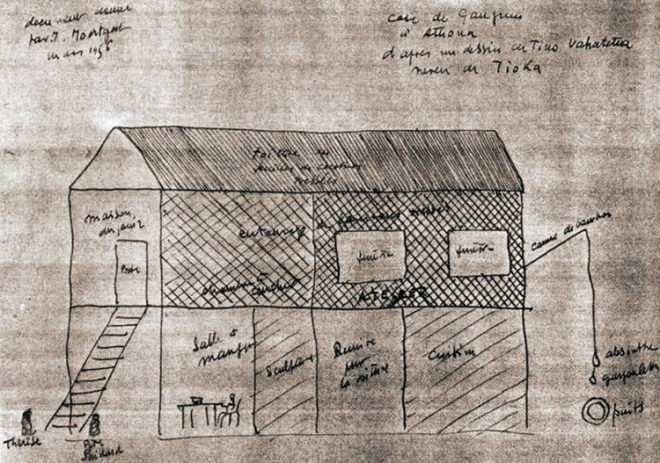 document donné
par J.
mars 1956
case de Gauguin
à Atuona
d'après un dessin de Timo Vahatetua
neveu de Tioka
toiture en
maison
du jouir
Porte
entourage de bambous tressés
fenêtre
fenêtre
canne de bambou
chambre à
coucher
ATELIER
Salle à
manger
Sculpture
Remise
pour
la voiture
Cuisine
absinthe
gargoulette
puits
Thérèse
Père
Paillard